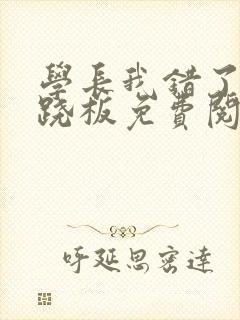 學長我錯了
跷板免費閱
呼延思密達